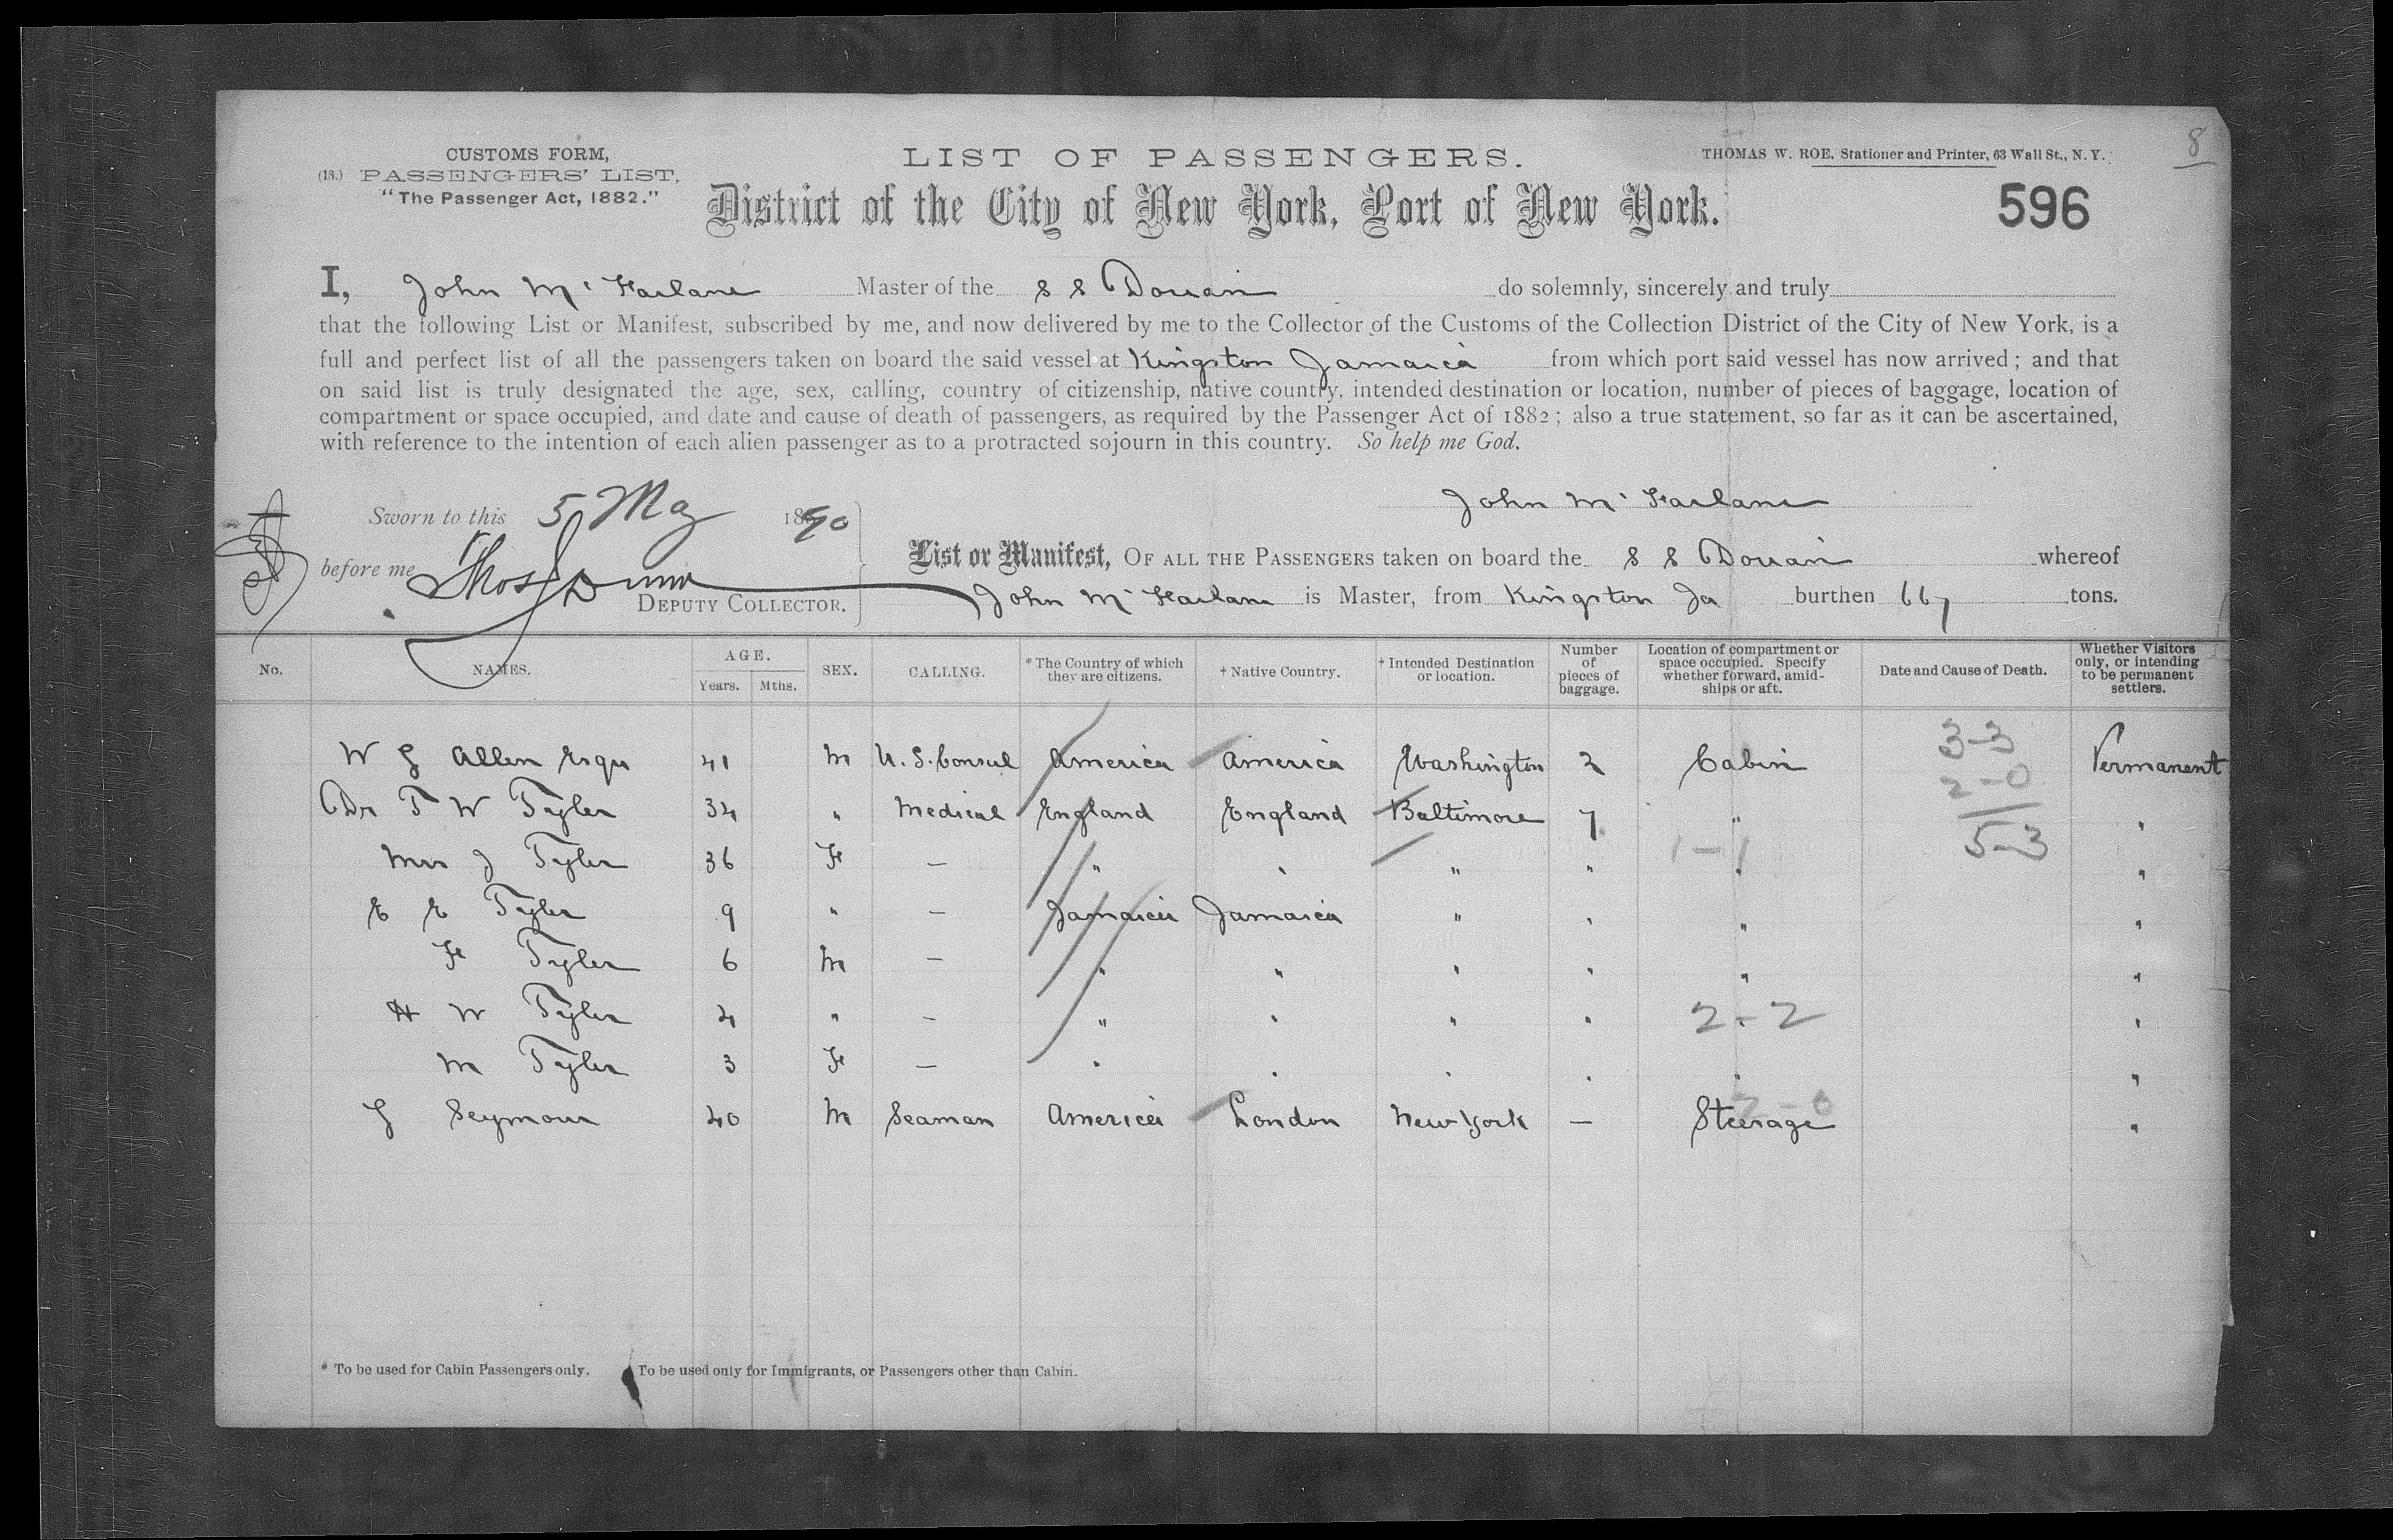 8
CUSTOMS FORM,
(18.) PASSENGERS' LIST,
"The Passenger Act, 1882."
LIST OF PASSENGERS.
THOMAS W. ROE, Stationer and Printer, 63 Wall St., N. Y.
District of the City of New York, Port of New York.
596
I, John Mc Farlane Master of the S S Dorian do solemnly, sincerely and truly
that the following List or Manifest, subscribed by me, and now delivered by me to the Collector of the Customs of the Collection District of the City of New York, is a
full and perfect list of all the passengers taken on board the said vessel at Kingston Jamaica from which port said vessel has now arrived; and that
on said list is truly designated the age, sex, calling, country of citizenship, native country, intended destination or location, number of pieces of baggage, location of
compartment or space occupied, and date and cause of death of passengers, as required by the Passenger Act of 1882; also a true statement, so far as it can be ascertained,
with reference to the intention of each alien passenger as to a protracted sojourn in this country. So help me God.
John Mc Farlane
Sworn to this 5 May 1890
before me Thos Dunn
DEPUTY COLLECTOR.
List or Manifest, OF ALL THE PASSENGERS taken on board the S S Dorian whereof
John Mc Farlane is Master, from Kingston Ja burthen 667 tons.
No. NAMES. AGE. Years. Mths. SEX. CALLING. * The Country of which they are citizens. † Native Country. † Intended Destination or location. Number of pieces of baggage. Location of compartment or space occupied. Specify whether forward, amidships or aft. Date and Cause of Death. Whether Visitors only, or intending to be permanent settlers.
W G Allen Esqu 41 M U.S. Consul America America Washington 2 Cabin 3-3 Permanent
2-0
Dr T W Tyler 34 " Medical England England Baltimore 7 " "
5-3
Mrs J Tyler 36 F — " " " " 1-1 " "
E E Tyler 9 " — Jamaica Jamaica " " " "
F Tyler 6 M — " " " " " "
H W Tyler 4 " — " " " " 2-2 "
M Tyler 3 F — " " " " " "
2-0
G Seymour 40 M Seaman America London New York — Steerage "
* To be used for Cabin Passengers only. † To be used only for Immigrants, or Passengers other than Cabin.